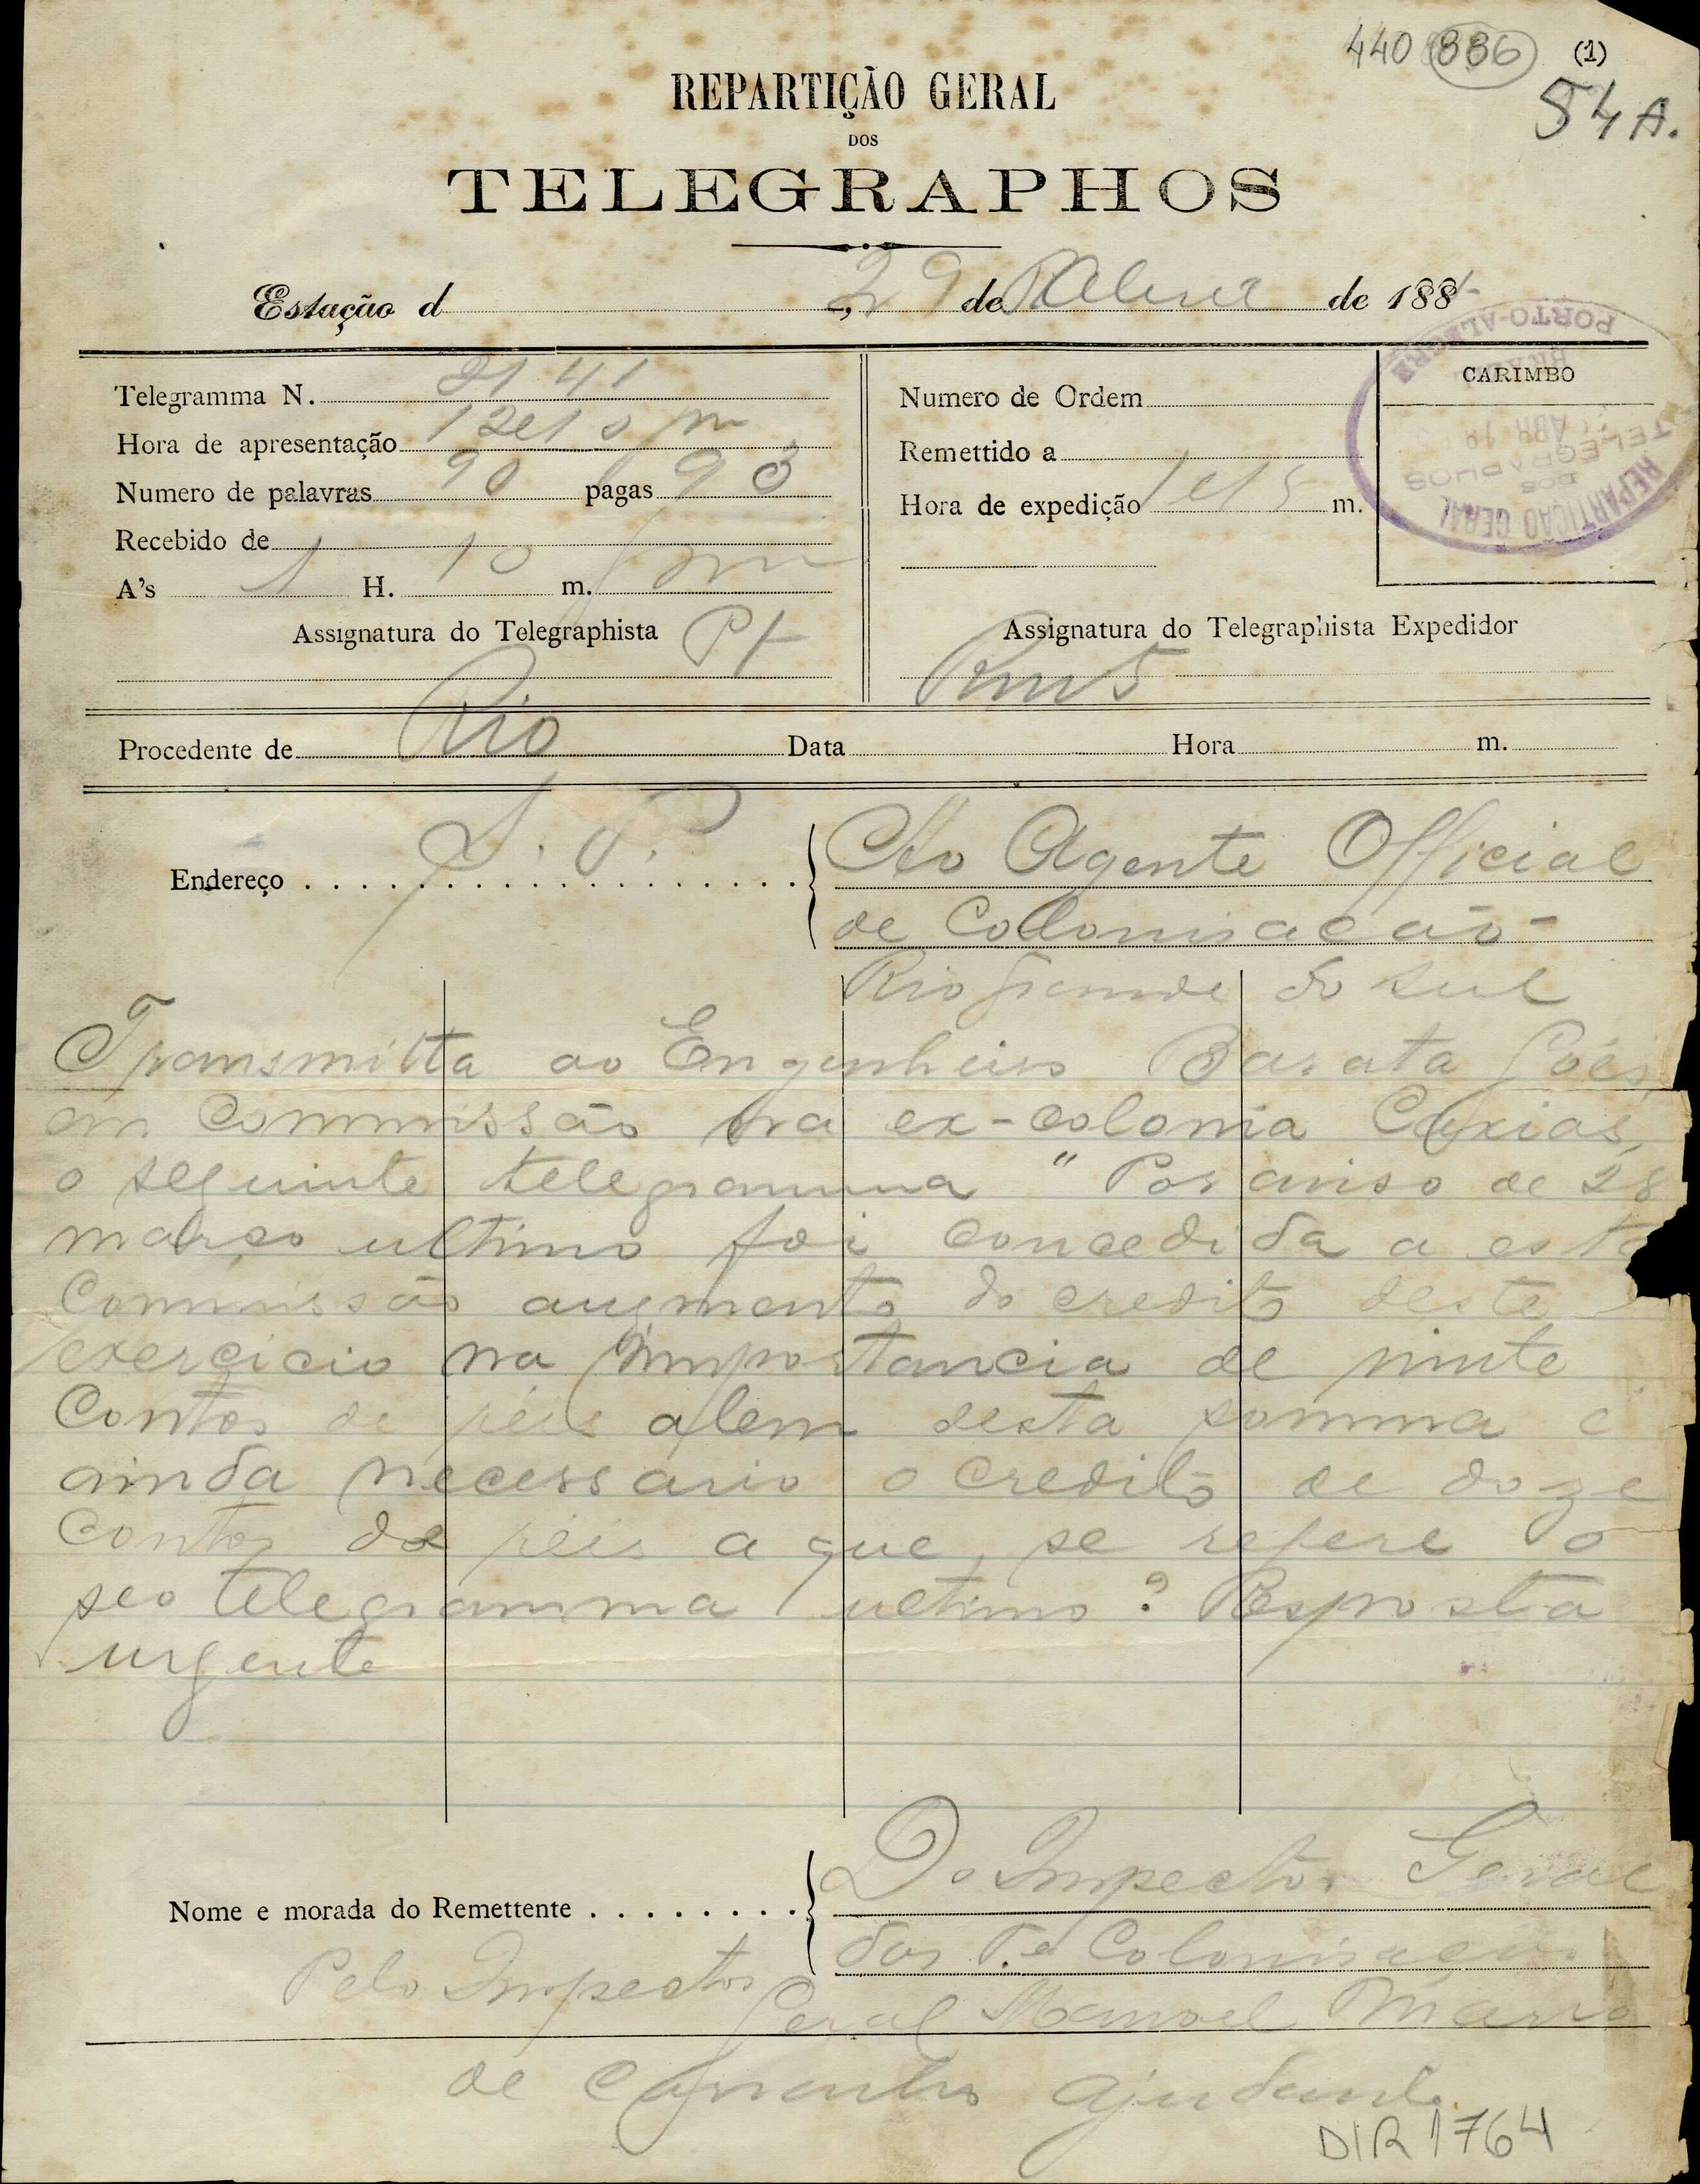 440 886 (1)
54 A.
REPARTIÇÃO GERAL
DOS
TELEGRAPHOS
Estação d , 29 de Abril de 188
Telegramma N. 2141
Hora de apresentação 12e10 m
Numero de palavras 90 pagas 93
Recebido de
A's 1 H. 10 m.
Assignatura do Telegraphista Pt
Numero de Ordem
Remettido a
Hora de expedição 1e15 m.
Assignatura do Telegraphista Expedidor
CARIMBO
REPARTIÇÃO GERAL
DOS
TELEGRAPHOS
ABR
BRAZIL
PORTO-ALEGRE
Procedente de Rio Data Hora m.
Endereço S. P. Ao Agente Official
de Colonisacão-
Rio Grande do Sul
Transmitta ao Engenheiro Barata Góes
em Commissão na ex-colonia Caxias,
o seguinte telegramma " Por aviso de 28
março ultimo foi concedida a esta
Commissão augmento do credito deste
exercicio na importancia de vinte
Contos de réis alem desta somma é
ainda necessario o credito de doze
Contos de réis a que, se refere o
seo telegramma ultimo? Resposta
urgente
Nome e morada do Remettente Do Inspector Geral
das T. e Colonisação
Pelo Inspector Geral Manoel Maria
de Carvalho ajudante.
DIR 1764